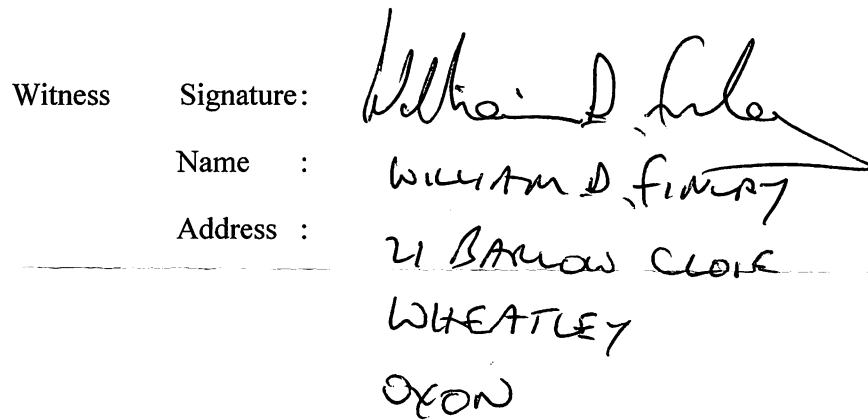 Witness Signature: William D. Finlay
Name : WILLIAM D. FINLAY
Address : 21 BARLOW CLOSE
WHEATLEY
OXON